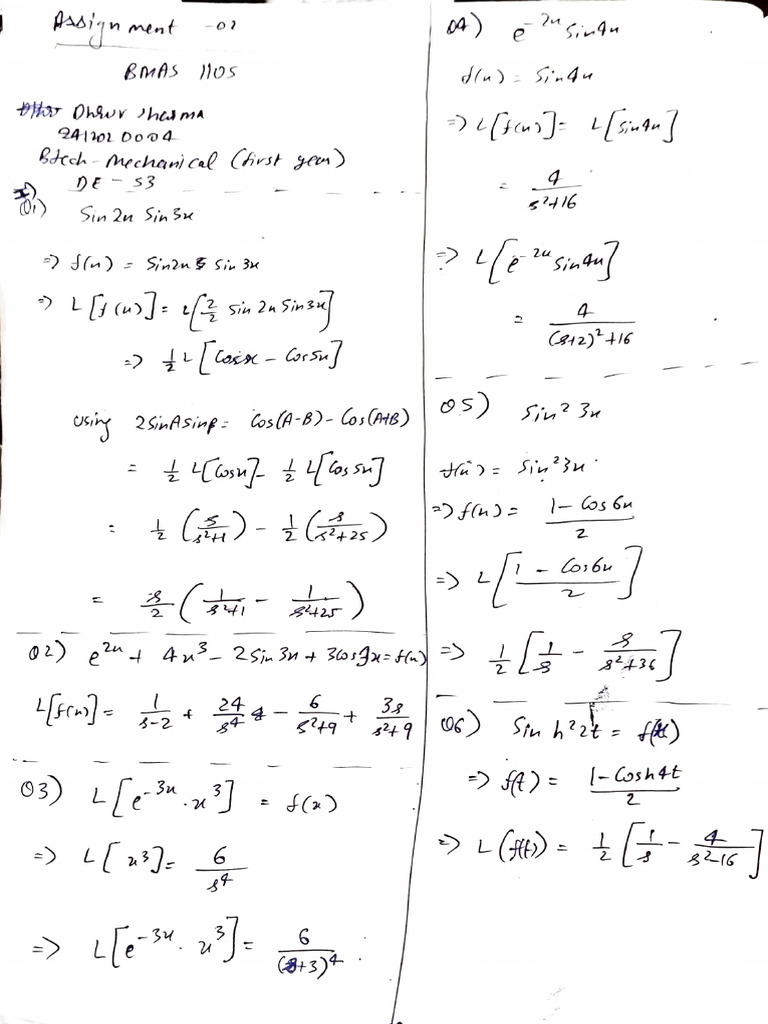 Assignment -02
BMAS 1105
Dhruv Sharma
2412020004
Btech-Mechanical (first year)
DE - S3
Q1) Sin2x Sin3x
=> f(x) = Sin2x Sin3x
=> L[f(x)] = L[2/2 Sin2x Sin3x]
=> 1/2 L[Cosx - Cos5x]
Using 2SinASinB = Cos(A-B) - Cos(A+B)
= 1/2 L[Cosx] - 1/2 L[Cos5x]
= 1/2 (s/s²+1) - 1/2 (s/s²+25)
= s/2 (1/s²+1 - 1/s²+25)
Q2) e^2x + 4x³ - 2Sin3x + 3Cos3x = f(x)
L[f(x)] = 1/s-2 + 24/s⁴ - 6/s²+9 + 3s/s²+9
Q3) L[e^-3x . x³] = f(x)
=> L[x³] = 6/s⁴
=> L[e^-3x . x³] = 6/(s+3)⁴ .
Q4) e^-2x Sin4x
f(x) = Sin4x
=> L[f(x)] = L[Sin4x]
= 4/s²+16
=> L[e^-2x Sin4x]
= 4/(s+2)²+16
Q5) Sin² 3x
f(x) = Sin²3x
=> f(x) = 1 - Cos6x/2
=> L[1 - Cos6x/2]
=> 1/2 [1/s - s/s²+36]
Q6) Sin h² 2t = f(t)
=> f(t) = 1 - Cosh4t/2
=> L(f(t)) = 1/2 [1/s - 4/s²-16]